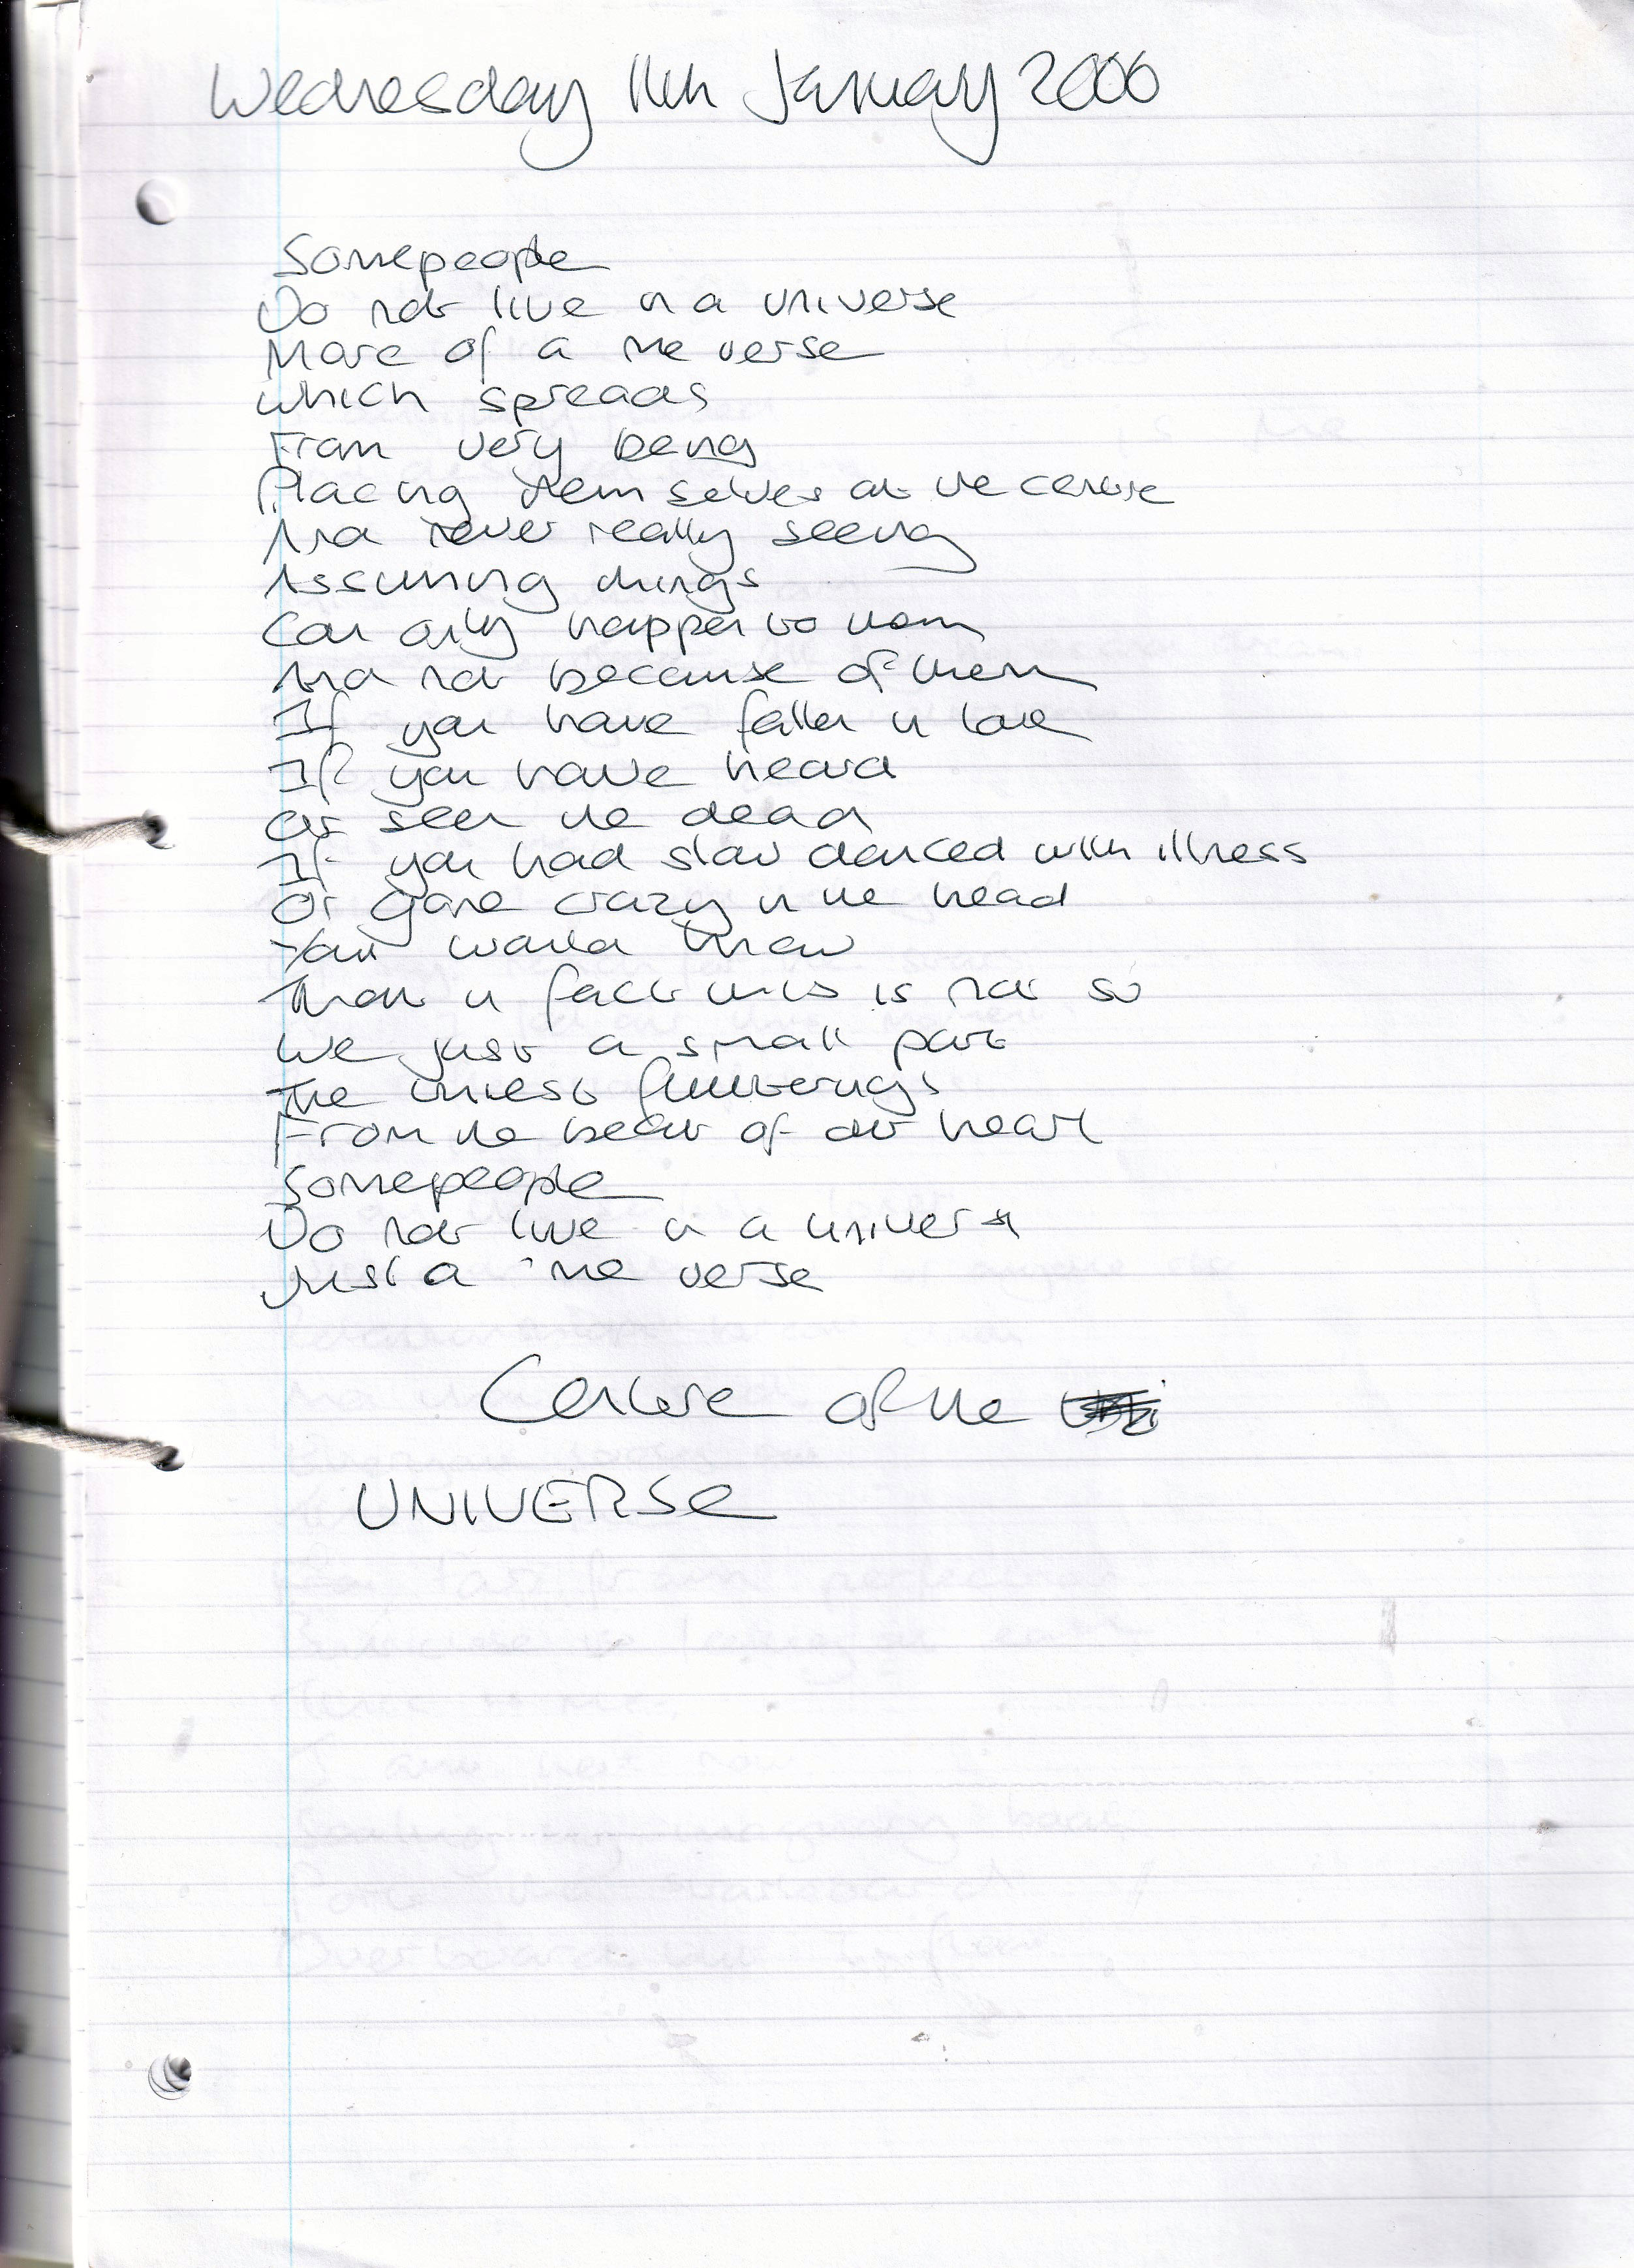 Wednesday 11th January 2006
Some people
Do not live in a universe
More of a me verse
Which spreads
From very being
Placing themselves at the centre
And never really seeing
Assuming things
Can only happen to them
And not because of them
If you have fallen in love
If you have heard
Or seen the dead
If you had slow danced with illness
Or gone crazy in the head
You would know
That in fact this is not so
We just a small part
The tiniest flutterings
From the beat of our heart
Some people
Do not live in a universe
Just a me verse
Centre of the
UNIVERSE